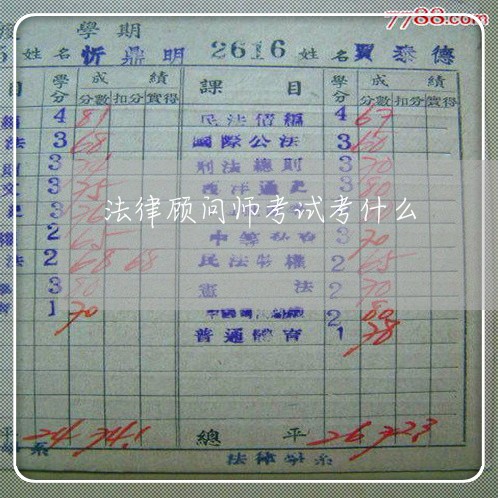 7788.com
學期
姓名 忻鼎明 2616 姓名 賈泰德
目 學分 成績 課目 學分 成績
分數 扣分 實得 分數 扣分 實得
4 81 民法債編 4 67
法 3 68 國際公法 3 60
3 刑法總則 3 70
3 75 西洋通史 3 80
法律顾问师考试考什么
2 65 3 70
法 2 68 68 民法物權 2 65
3 80 憲法 2 70
1 70 2 80
普通體育 1 78
24 74.1 總平 26 72.3
系 法律學系